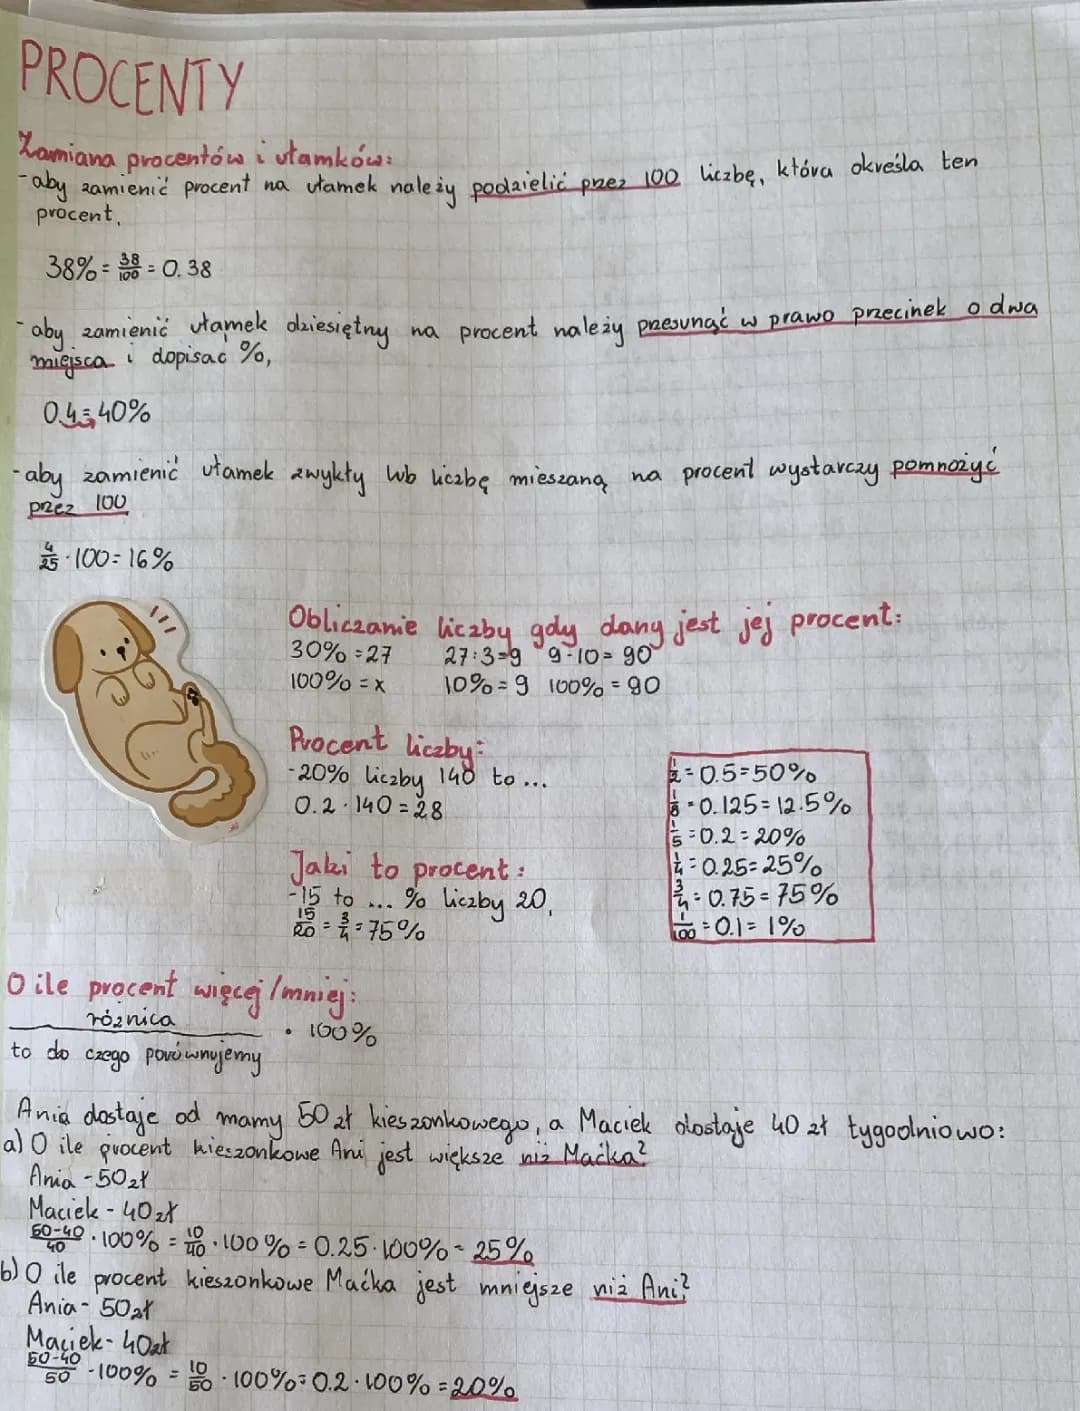 PROCENTY
Zamiana procentów i ułamków:
- aby zamienić procent na ułamek należy podzielić przez 100 liczbę, która określa ten
procent,
38% = 38/100 = 0.38
- aby zamienić ułamek dziesiętny na procent należy przesunąć w prawo przecinek o dwa
miejsca i dopisać %,
0.4 = 40%
- aby zamienić ułamek zwykły lub liczbę mieszaną na procent wystarczy pomnożyć
przez 100
4/25 · 100 = 16%
Obliczanie liczby gdy dany jest jej procent:
30% = 27 27:3=9 9·10=90
100% = x 10% = 9 100% = 90
Procent liczby:
- 20% liczby 140 to ...
0.2 · 140 = 28
Jaki to procent:
- 15 to ... % liczby 20,
15/20 = 3/4 = 75%
1/2 = 0.5 = 50%
1/8 = 0.125 = 12.5%
1/5 = 0.2 = 20%
1/4 = 0.25 = 25%
3/4 = 0.75 = 75%
1/100 = 0.1 = 1%
O ile procent więcej/mniej:
różnica
· 100%
to do czego porównujemy
Ania dostaje od mamy 50 zł kieszonkowego, a Maciek dostaje 40 zł tygodniowo:
a) O ile procent kieszonkowe Ani jest większe niż Maćka?
Ania - 50zł
Maciek - 40zł
50-40/40 · 100% = 10/40 · 100% = 0.25 · 100% = 25%
b) O ile procent kieszonkowe Maćka jest mniejsze niż Ani?
Ania - 50zł
Maciek - 40zł
50-40/50 · 100% = 10/50 · 100% = 0.2 · 100% = 20%